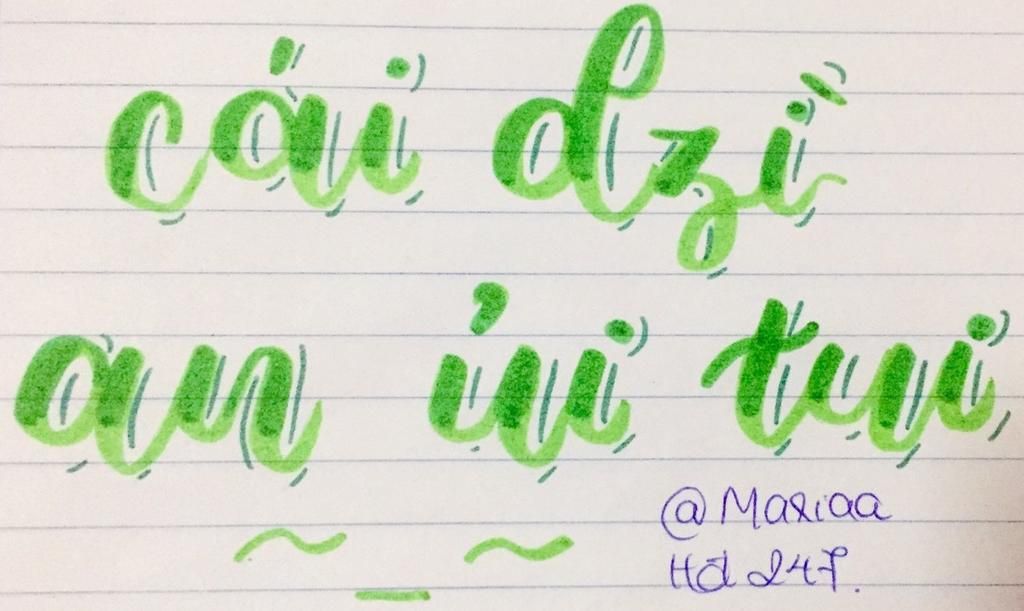 cái dzì
an ủi tui
@Maxiaa
Hd 247.
~ _ ~